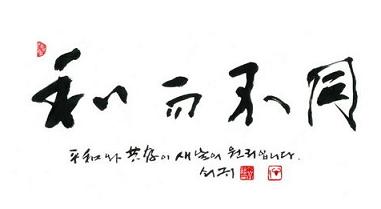 和而不同
平和와 共存이 새날의 원리입니다.
쇠귀